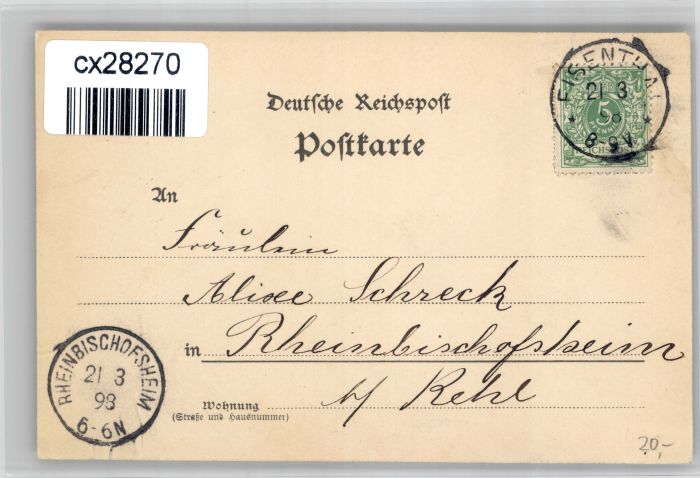 cx28270
Deutsche Reichspost
Postkarte
EISENTHAL
21 3
98
8-9V
5
PFENNIG
REICHSPOST
An
Fräulein
Schreck
in Rheinbischofsheim
b/ Kehl
Wohnung
(Straße und Hausnummer)
RHEINBISCHOFSHEIM
21 3
98
6-6N
20,-